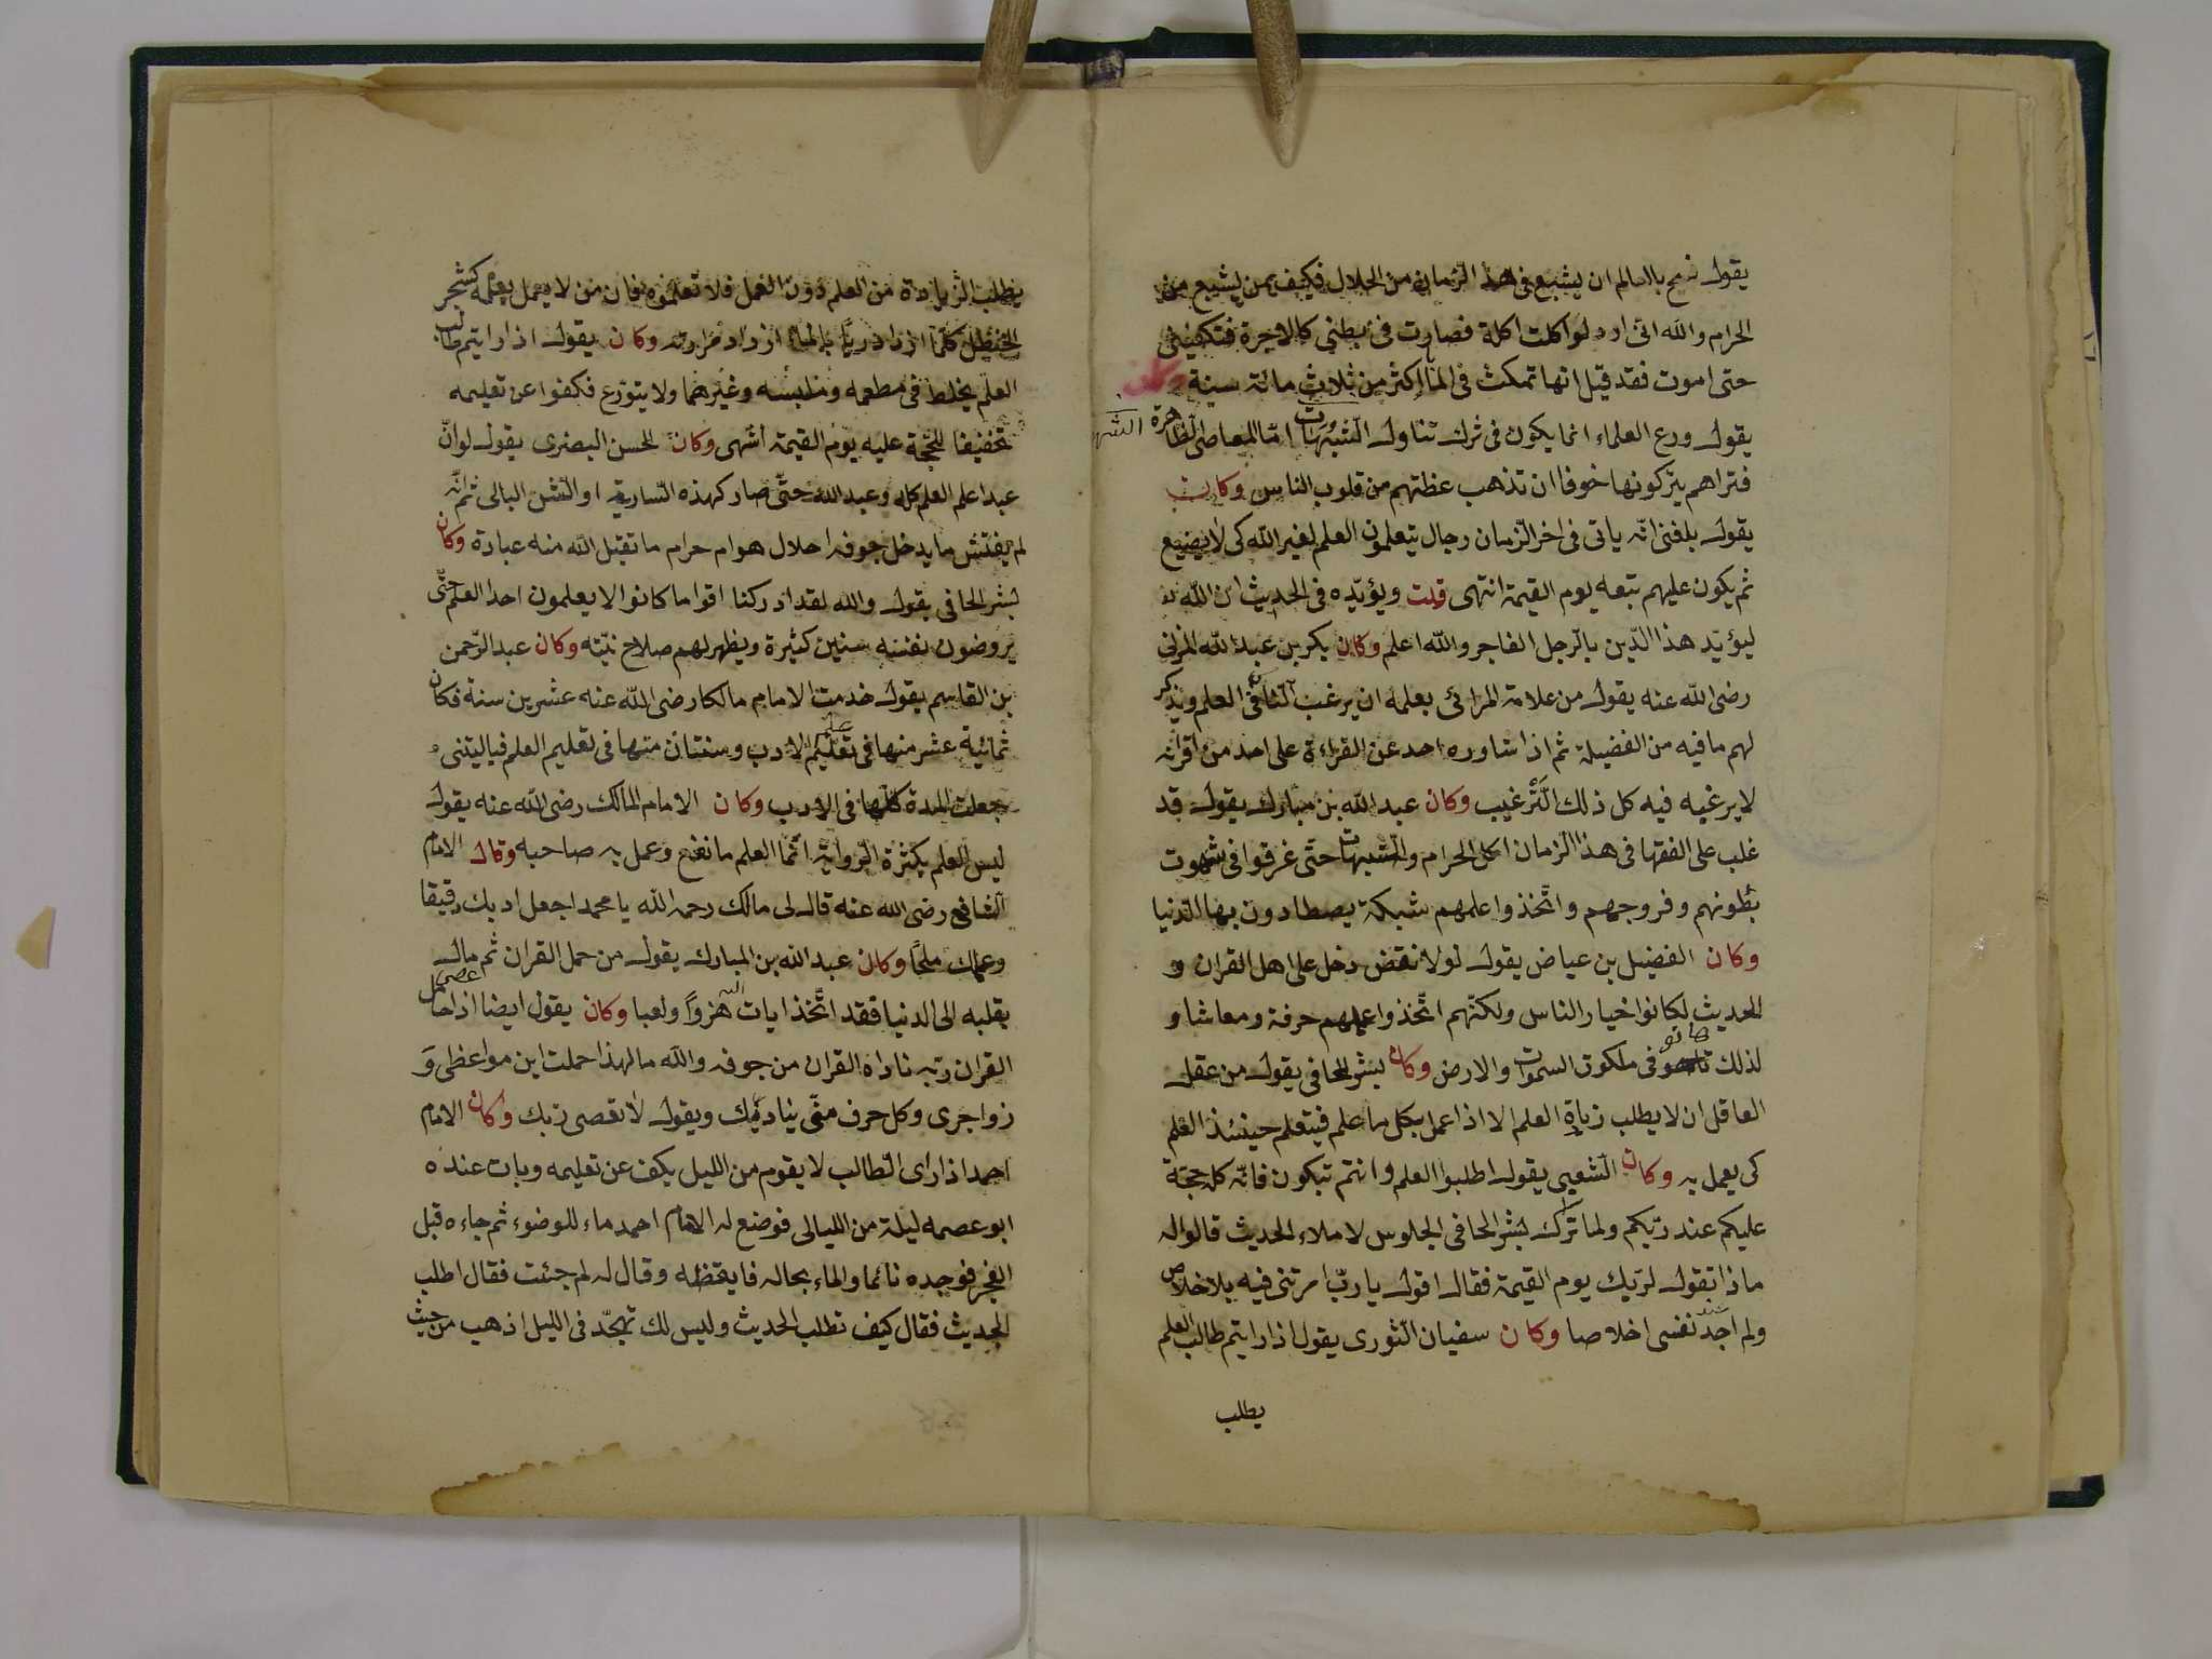 يقول نرمح بالعالم ان يشبع فى هذا الزمان من الحلال فكيف بمن يشبع من
الحرام والله انى اود لو اكلت اكلة فصارت فى بطنى كالاجرة فتكفينى
حتى اموت فقد قيل انها تمكث فى الماء اكثر من ثلاث مائة سنة وكان
يقول ورع العلماء انما يكون فى ترك تناول الشبهات امّا المعاصى الظاهرة
فتراهم يتركونها خوفا ان تذهب عظتهم من قلوب الناس وكان
يقول بلغنى انّه ياتى فى اخر الزّمان رجال يتعلمون العلم لغير الله كى لا يضيع
ثم يكون عليهم تبعه يوم القيمة انتهى قلت ويؤيّده فى الحديث ان الله
ليؤيّد هذا الدّين بالرّجل الفاجر والله اعلم وكان بكر بن عبد الله المزنى
رضى الله عنه يقول من علامة المرائى بعلمه ان يرغب النّاس فى العلم ويذكر
لهم ما فيه من الفضيلة ثم اذا شاوره احد عن القراءة على احد من اقرانه
لا يرغبه فيه كل ذلك التّرغيب وكان عبد الله بن مبارك يقول قد
غلب على الفقها فى هذا الزمان اكل الحرام والشبهات حتى غرقوا فى شهوت
بطونهم وفروجهم واتّخذوا علمهم شبكة يصطادون بها الدنيا
وكان الفضيل بن عياض يقول لولا نقض دخل على اهل القران و
الحديث لكانوا خيار الناس ولكنّهم اتّخذوا علمهم حرفة ومعاشا و
لذلك هانو فى ملكوت السموات والارض وكان بشر الحافى يقول من عقل
العاقل ان لا يطلب زيادة العلم الا اذا عمل بكل ما علم فيتعلم حينئذ العلم
كى يعمل به وكان الشعبى يقول اطلبوا العلم وانتم تبكون فانّه كله حجة
عليكم عند ربّكم ولما ترك بشر الحافى الجلوس لاملاء الحديث قالوا له
ماذا تقول لربّك يوم القيمة فقال اقول يا ربّ امرتنى فيه بالاخلاص
ولم اجد عند نفسى اخلاصا وكان سفيان الثورى يقول اذا رايتم طالب العلم
يطلب
يطلب الزيادة من العلم دون العمل فلا تعلموه فان من لا يعمل بعلمه كشجر
الحنظل كلّما ازداد ريّا بالماء ازداد مرارته وكان يقول اذا رايتم طالب
العلم يخلط فى مطعمه وملبسه وغيرهما ولا يتورّع فكفوا عن تعليمه
تخفيفا للحجّة عليه يوم القيمة انتهى وكان الحسن البصرى يقول لو انّ
عبدا علم العلم كله وعبد الله حتّى صار كهذه السارية او الشن البالى ثم انّه
لم يفتش ما يدخل جوفه احلال هو ام حرام ما تقبل الله منه عبادة وكان
بشر الحافى يقول والله لقد ادركنا اقواما كانوا لا يعلمون احدا العلم حتّى
يروضون نفسه سنين كثيرة ويظهر لهم صلاح نيّته وكان عبد الرّحمن
بن القاسم يقول خدمت الامام مالكا رضى الله عنه عشرين سنة فكان
ثمانية عشر منها فى تعليم الادب وسنتان منها فى تعليم العلم فياليتنى
جعلت المدة كلّها فى الادب وكان الامام المالك رضى الله عنه يقول
ليس العلم بكثرة الرّواية انّما العلم ما نفع وعمل به صاحبه وقال الامام
الشافع رضى الله عنه قال لى مالك رحمه الله يا محمد اجعل ادبك دقيقا
وعملك ملحًا وكان عبد الله بن المبارك يقول من حمل القران ثم مال
بقلبه الى الدنيا فقد اتّخذ ايات الله هزوًا ولعبا وكان يقول ايضا اذا عصى حامل
القران ربّه ناداه القران من جوفه والله ما لهذا حملت اين مواعظى وَ
زواجرى وكل حرف منّى يناديك ويقول لا تعصى ربّك وكان الامام
احمد اذا راى الطالب لا يقوم من الليل يكف عن تعليمه وبات عنده
ابو عصمه ليلة من الليالى فوضع له الامام احمد ماء للوضوء ثم جاءه قبل
الفجر فوجده نائما والماء بحاله فايقظه وقال له لم جئت فقال اطلب
الحديث فقال كيف تطلب الحديث وليس لك تهجّد فى الليل اذهب من حيث